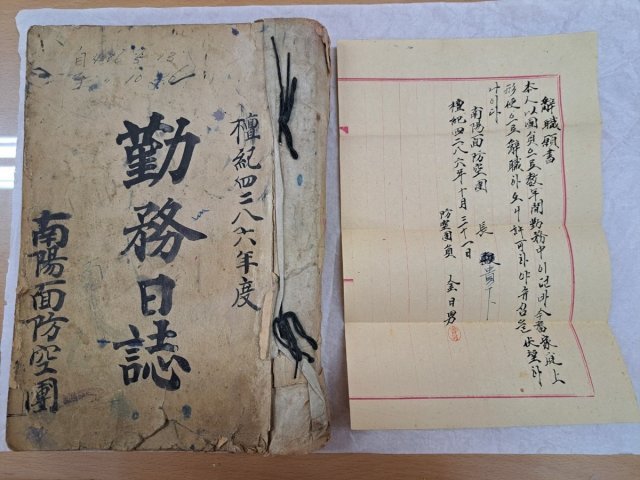 檀紀四二八六年度
勤務日誌
南陽面防空團
解職願書
本人以團員으로數年間勤務中이던바今番家庭上
形便으로解職하오니許可하야주심을伏望하
나이다
南陽面防空團長 貴下
檀紀四二八六年十月三十一日
防空團員 金日男